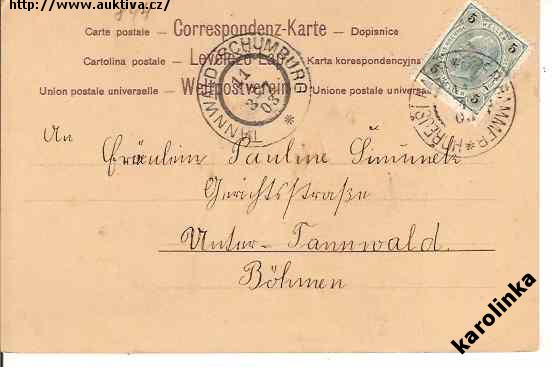 http://www.auktiva.cz/
844
Carte postale — Correspondenz-Karte — Dopisnice
Cartolina postale — Levelező-Lap — Karta korespondencyjna
Union postale universelle — Weltpostverein — Unione postale universale
5 5
5 5
TANNWALD-SCHUMBURG
11
3
03
An
Fräulein Pauline Simmek
Gerichtsstraße
Unter-Tannwald
Böhmen
karolinka